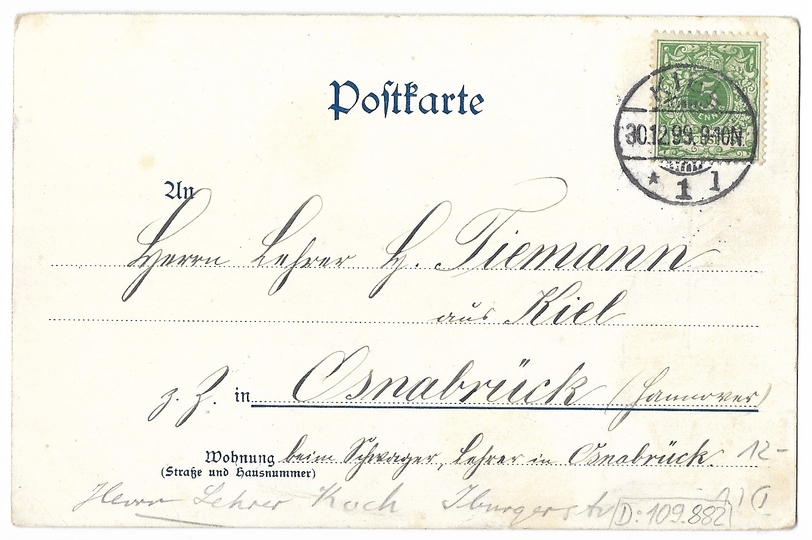 Postkarte
5
KIEL
30.12.99. 9-10N.
* 1 l
An
Herrn Lehrer H. Tiemann
aus Kiel
z. Z. in Osnabrück (Hannover)
Wohnung beim Schwager, Lehrer in Osnabrück.
(Straße und Hausnummer)
12-
Herrn Lehrer Koch Iburgerstr
D: 109.882